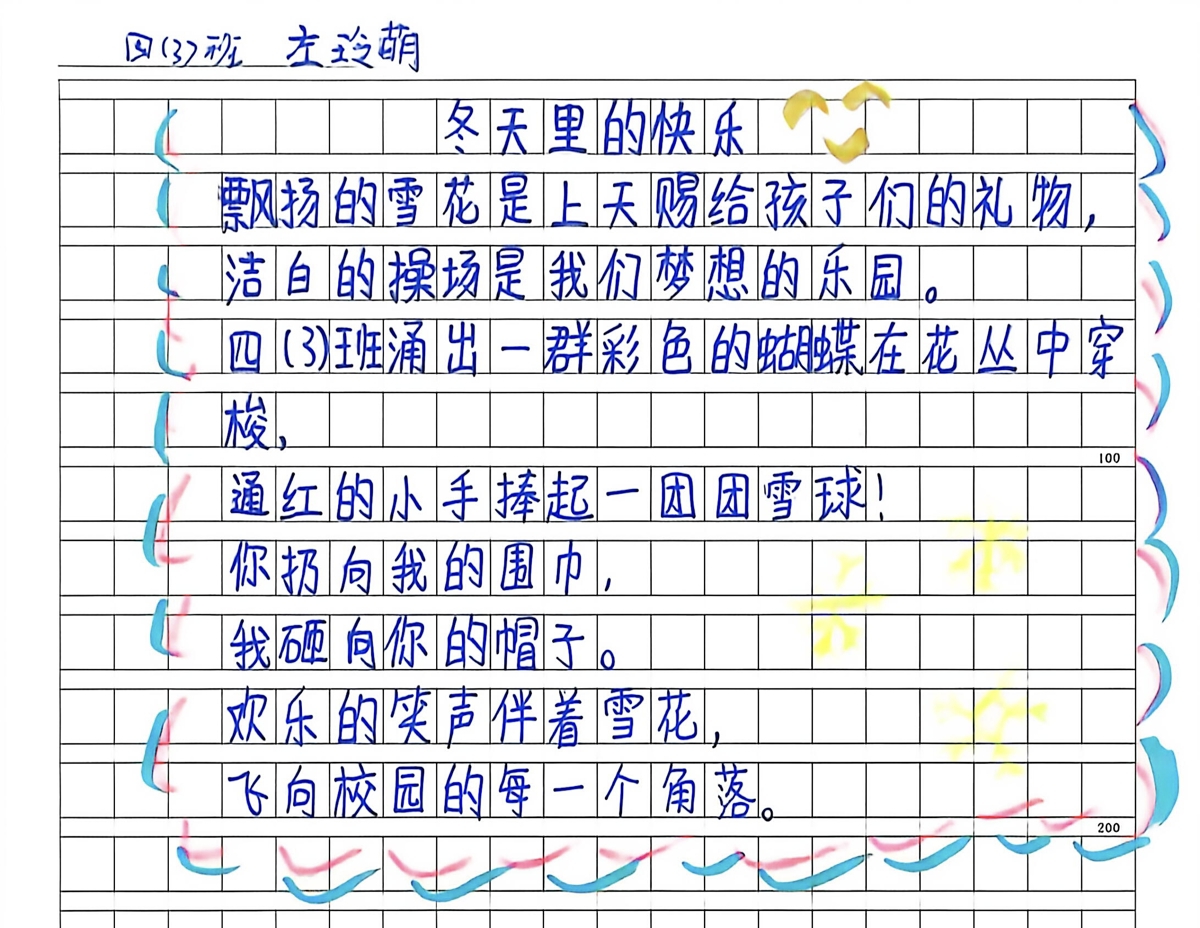 四(3)班 左玲萌
冬天里的快乐
飘扬的雪花是上天赐给孩子们的礼物,
洁白的操场是我们梦想的乐园。
四(3)班涌出一群彩色的蝴蝶在花丛中穿
梭,
100
通红的小手捧起一团团雪球!
你扔向我的围巾,
我砸向你的帽子。
欢乐的笑声伴着雪花,
飞向校园的每一个角落。
200